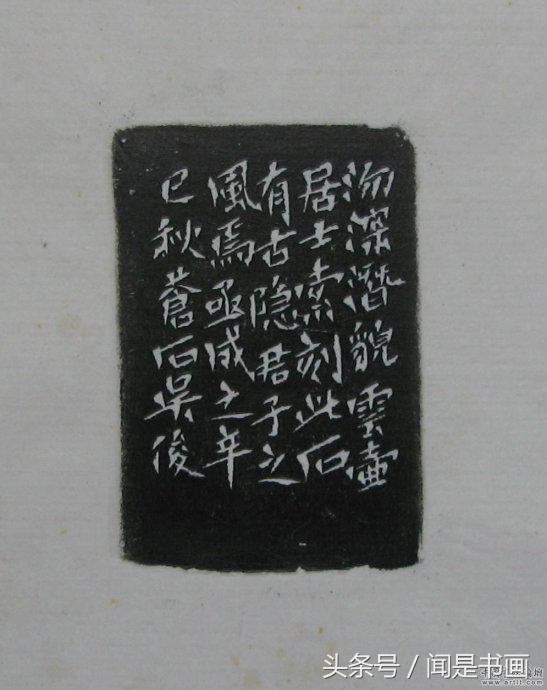 沕深潛貌雲壺
居士索刻此石
有古隐君子之
風焉亟成之辛
巳秋蒼石吳俊
头条号 / 闻是书画